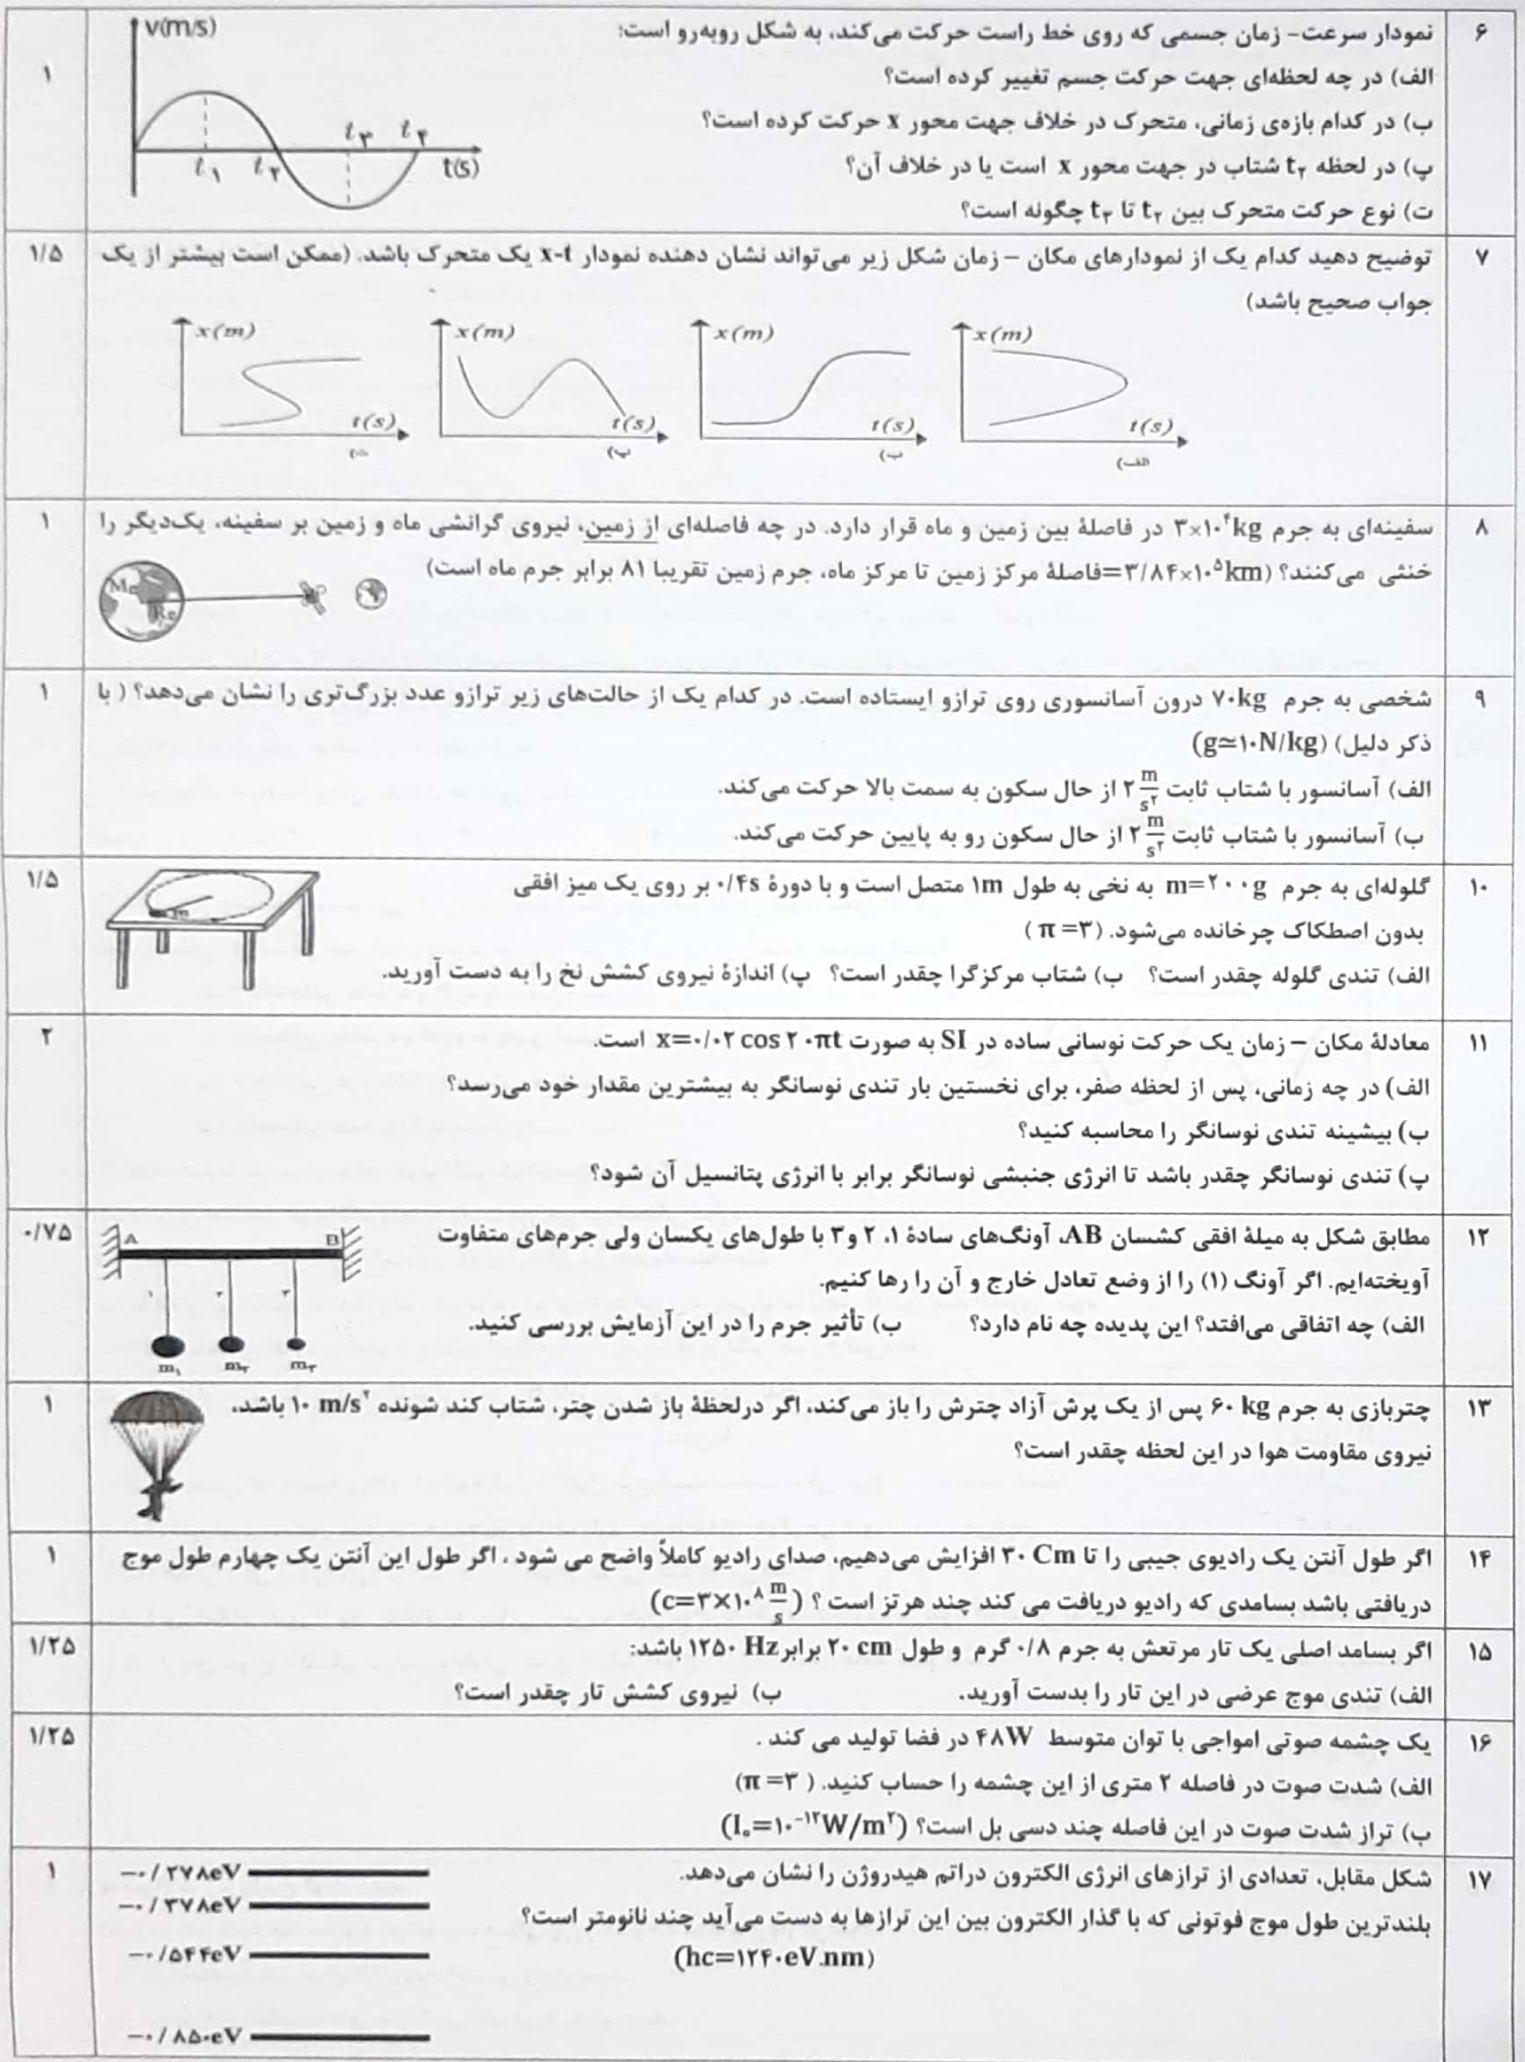 ۶ نمودار سرعت- زمان جسمی که روی خط راست حرکت می‌کند، به شکل روبه‌رو است:
الف) در چه لحظه‌ای جهت حرکت جسم تغییر کرده است؟ ۱
ب) در کدام بازه‌ی زمانی، متحرک در خلاف جهت محور x حرکت کرده است؟
پ) در لحظه t۲ شتاب در جهت محور x است یا در خلاف آن؟
ت) نوع حرکت متحرک بین t۲ تا t۳ چگونه است؟
v(m/s)
t۳ t۴
t۱ t۲ t(s)
۷ توضیح دهید کدام یک از نمودارهای مکان – زمان شکل زیر می‌تواند نشان دهنده نمودار x-t یک متحرک باشد. (ممکن است بیشتر از یک ۱/۵
جواب صحیح باشد)
x(m) x(m) x(m) x(m)
t(s) t(s) t(s) t(s)
الف) ب) پ) ت)
۸ سفینه‌ای به جرم ۳×۱۰^۴kg در فاصلهٔ بین زمین و ماه قرار دارد. در چه فاصله‌ای از زمین، نیروی گرانشی ماه و زمین بر سفینه، یک‌دیگر را ۱
خنثی می‌کنند؟ (۳/۸۴×۱۰^۵km=فاصلهٔ مرکز زمین تا مرکز ماه، جرم زمین تقریبا ۸۱ برابر جرم ماه است)
Me
Re
۹ شخصی به جرم ۷۰kg درون آسانسوری روی ترازو ایستاده است. در کدام یک از حالت‌های زیر ترازو عدد بزرگ‌تری را نشان می‌دهد؟ ( با ۱
ذکر دلیل) (g≃۱۰N/kg)
الف) آسانسور با شتاب ثابت ۲ m/s۲ از حال سکون به سمت بالا حرکت می‌کند.
ب) آسانسور با شتاب ثابت ۲ m/s۲ از حال سکون رو به پایین حرکت می‌کند.
۱۰ گلوله‌ای به جرم m=۲۰۰g به نخی به طول ۱m متصل است و با دورهٔ ۰/۴s بر روی یک میز افقی ۱/۵
بدون اصطکاک چرخانده می‌شود. (π =۳ )
الف) تندی گلوله چقدر است؟ ب) شتاب مرکزگرا چقدر است؟ پ) اندازهٔ نیروی کشش نخ را به دست آورید.
m
۱۱ معادلهٔ مکان – زمان یک حرکت نوسانی ساده در SI به صورت x=۰/۰۲ cos ۲۰πt است. ۲
الف) در چه زمانی، پس از لحظه صفر، برای نخستین بار تندی نوسانگر به بیشترین مقدار خود می‌رسد؟
ب) بیشینه تندی نوسانگر را محاسبه کنید؟
پ) تندی نوسانگر چقدر باشد تا انرژی جنبشی نوسانگر برابر با انرژی پتانسیل آن شود؟
۱۲ مطابق شکل به میلهٔ افقی کشسان AB، آونگ‌های سادهٔ ۱، ۲ و۳ با طول‌های یکسان ولی جرم‌های متفاوت ۰/۷۵
آویخته‌ایم. اگر آونگ (۱) را از وضع تعادل خارج و آن را رها کنیم.
الف) چه اتفاقی می‌افتد؟ این پدیده چه نام دارد؟ ب) تأثیر جرم را در این آزمایش بررسی کنید.
A B
۱ ۲ ۳
m۱ m۲ m۳
۱۳ چتربازی به جرم ۶۰ kg پس از یک پرش آزاد چترش را باز می‌کند، اگر درلحظهٔ باز شدن چتر، شتاب کند شونده ۱۰ m/s۲ باشد، ۱
نیروی مقاومت هوا در این لحظه چقدر است؟
۱۴ اگر طول آنتن یک رادیوی جیبی را تا ۳۰ Cm افزایش می‌دهیم، صدای رادیو کاملاً واضح می شود . اگر طول این آنتن یک چهارم طول موج ۱
دریافتی باشد بسامدی که رادیو دریافت می کند چند هرتز است ؟ (c=۳×۱۰^۸ m/s)
۱۵ اگر بسامد اصلی یک تار مرتعش به جرم ۰/۸ گرم و طول ۲۰ cm برابر ۱۲۵۰ Hz باشد: ۱/۲۵
الف) تندی موج عرضی در این تار را بدست آورید. ب) نیروی کشش تار چقدر است؟
۱۶ یک چشمه صوتی امواجی با توان متوسط ۴۸W در فضا تولید می کند . ۱/۲۵
الف) شدت صوت در فاصله ۲ متری از این چشمه را حساب کنید. ( π =۳)
ب) تراز شدت صوت در این فاصله چند دسی بل است؟ (I₀=۱۰^-۱۲W/m۲)
۱۷ شکل مقابل، تعدادی از ترازهای انرژی الکترون دراتم هیدروژن را نشان می‌دهد. ۱
بلندترین طول موج فوتونی که با گذار الکترون بین این ترازها به دست می‌آید چند نانومتر است؟
(hc=۱۲۴۰eV.nm)
−۰/۲۷۸eV
−۰/۳۷۸eV
−۰/۵۴۴eV
−۰/۸۵۰eV